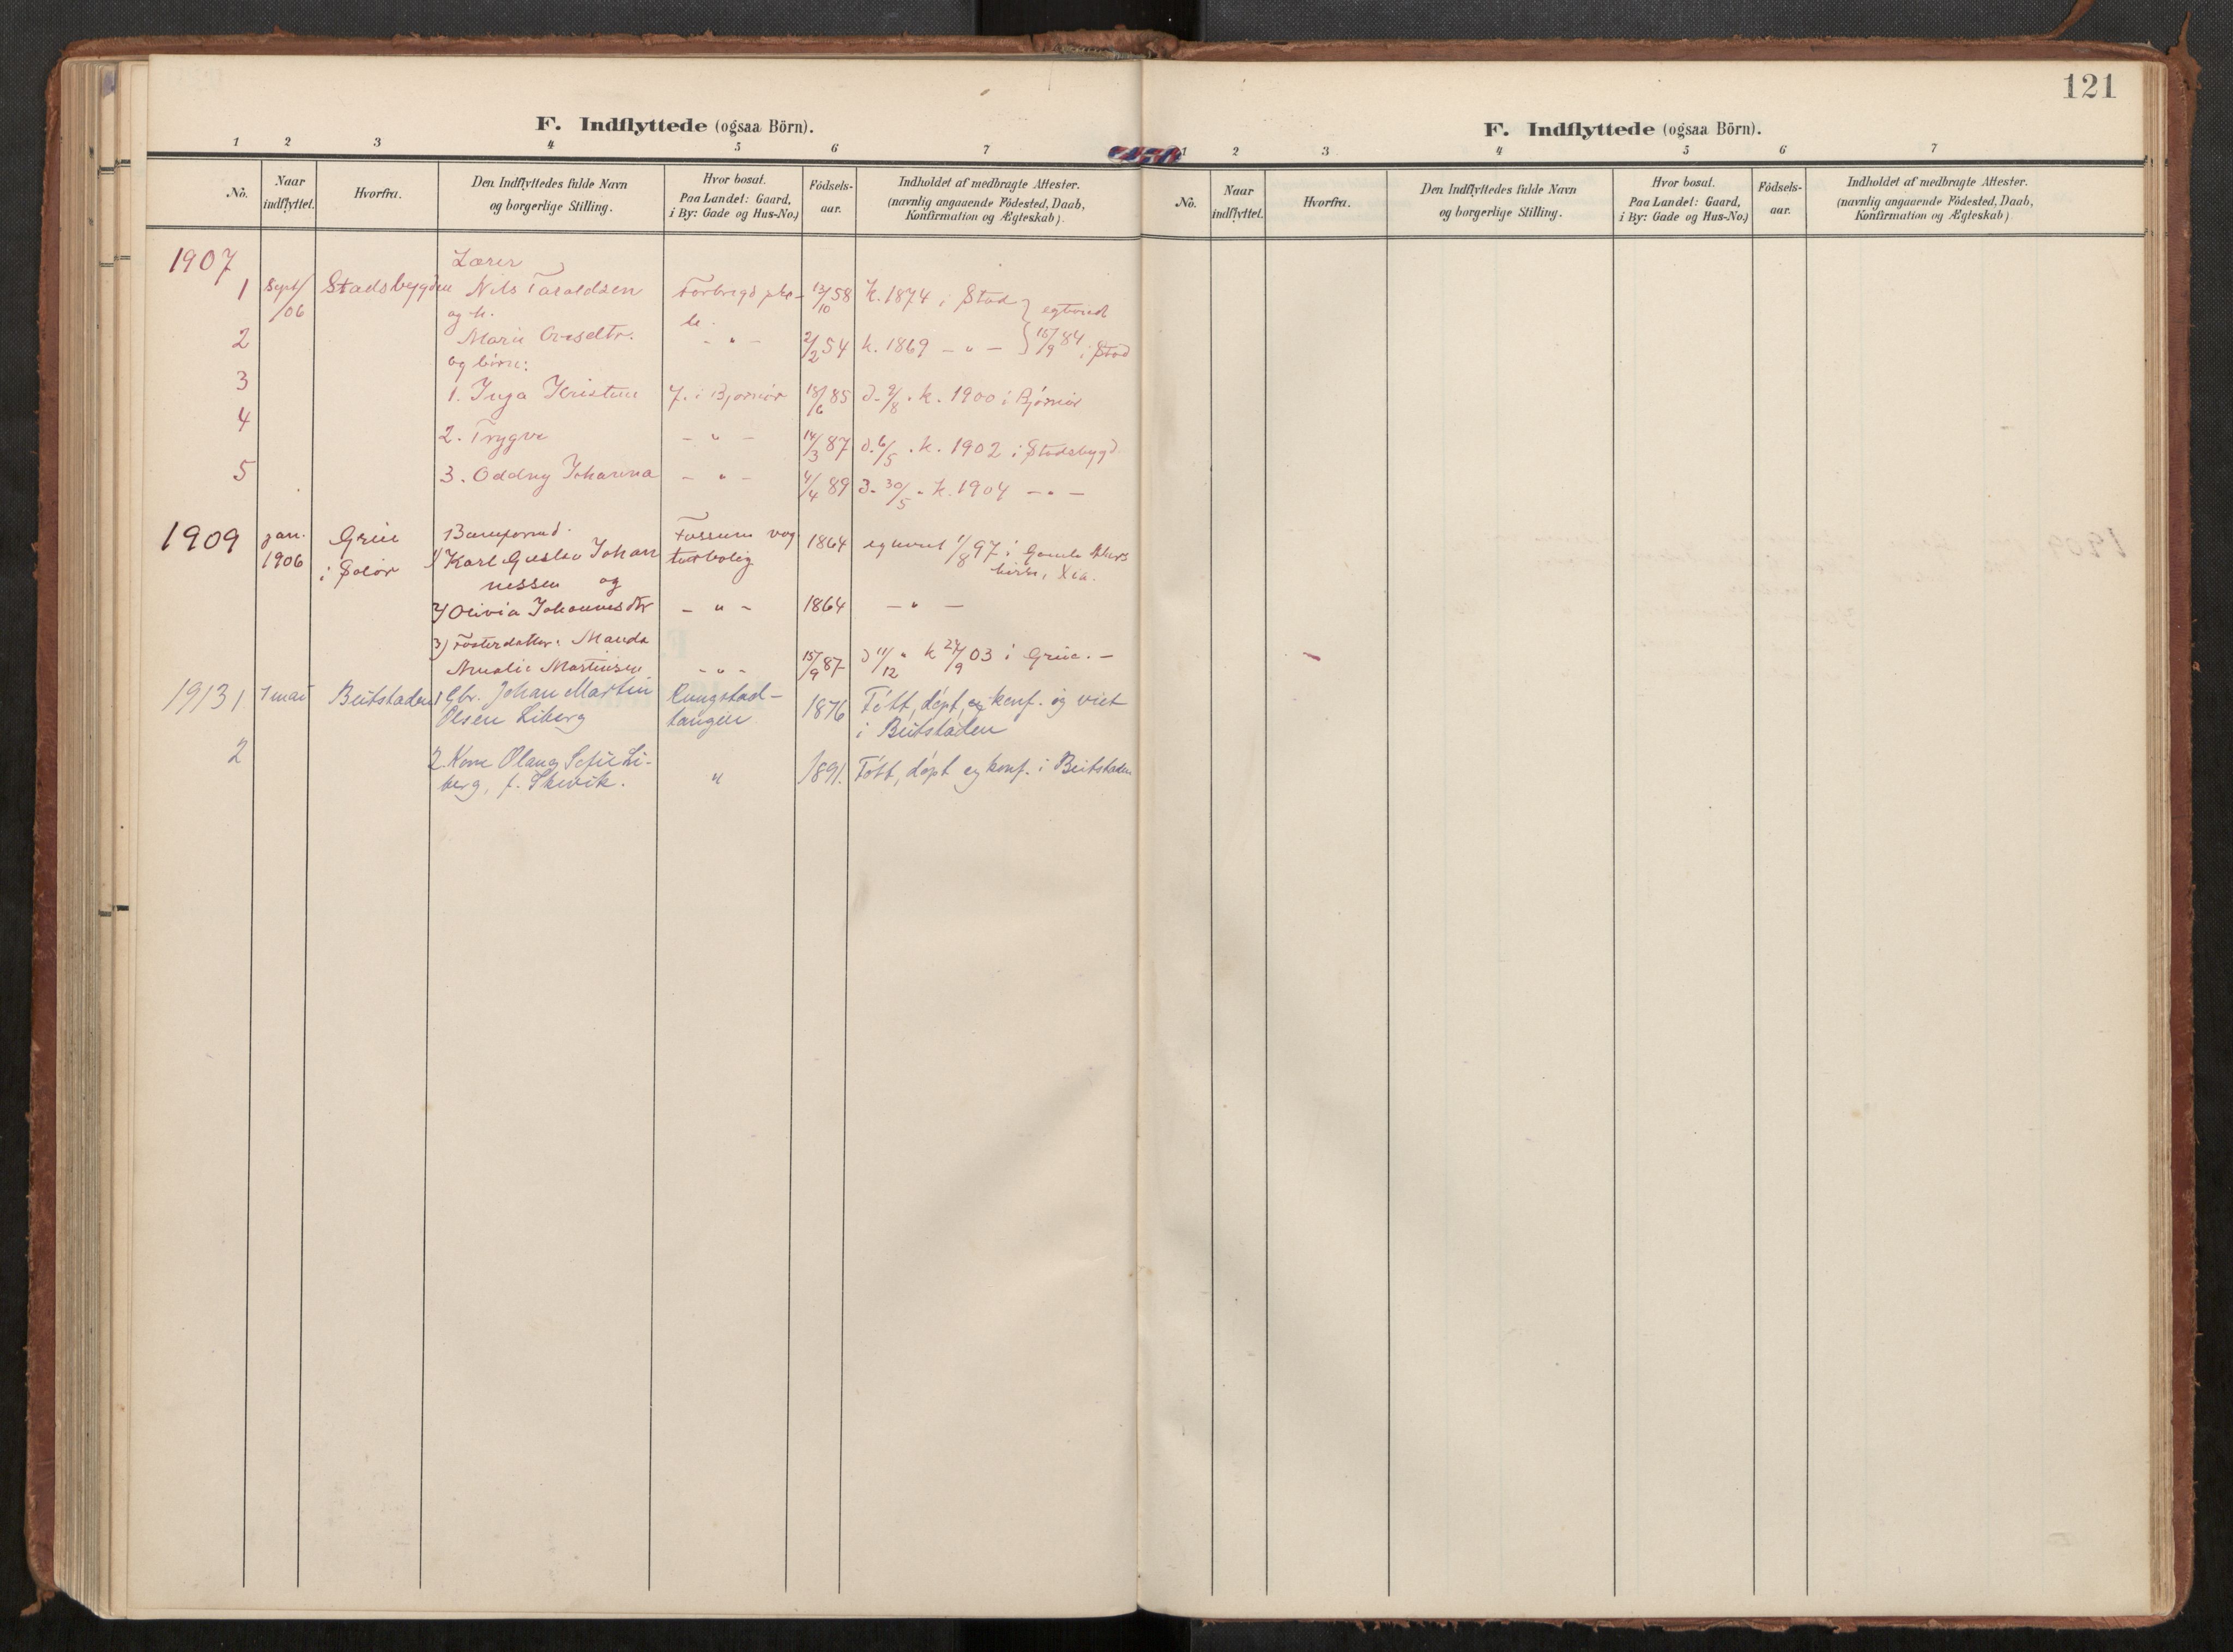 121
F. Indflyttede (ogsaa Börn).
1 2 3 4 5 6 7
No. Naar indflyttet. Hvorfra. Den Indflyttedes fulde Navn og borgerlige Stilling. Hvor bosat. Paa Landet: Gaard, i By: Gade og Hus-No.) Födsels-aar. Indholdet af medbragte Attester. (navnlig angaaende Födested, Daab, Konfirmation og Ægteskab).
1907 Lærer
1 Sept/06 Stadsbygden Nils Taraldsen 13/10 58 K. 1874 i Stod
og h. egtevied
2 Marie - " - 2/2 54 k. 1869 - " - 15/9 84 i Stod
og börn:
3 1. Inga Kristine f. i Bjørnör 18/6 85 d. 9/8. k. 1900 i Bjørnör
4 2. Trygve - " - 14/3 87 d. 6/5. k. 1902 i Stadsbygd
5 3. Oddny Johanna - " - 4/4 89 d. 30/5. k. 1904 - " -
1909 jan. 1906 Grue i Solör Baneformd. Fossum vog
1) Karl Gustav Johan turbolig 1864 egteviet 1/8 97 i Gamle Akers
nessen og kirke, Xia.
2) Olivia Johannesdtr - " - 1864 - " -
3) Fosterdatter: Manda
Amalie Martinsen - " - 15/9 87 d 11/12 " k 27/9 03 i Grue. -
1913 1 7 mai Beitstaden 1 Gbr. Johan Martin Rungstad-
Olsen Liberg tangen 1876 Fött, döpt, og konf. og viet
i Beitstaden
2 2. Kone Olaug Sofie Li-
berg, f. Skevik. " 1891. Fött, döpt og konf. i Beitstaden
F. Indflyttede (ogsaa Börn).
1 2 3 4 5 6 7
No. Naar indflyttet. Hvorfra. Den Indflyttedes fulde Navn og borgerlige Stilling. Hvor bosat. Paa Landet: Gaard, i By: Gade og Hus-No.) Födsels-aar. Indholdet af medbragte Attester. (navnlig angaaende Födested, Daab, Konfirmation og Ægteskab).